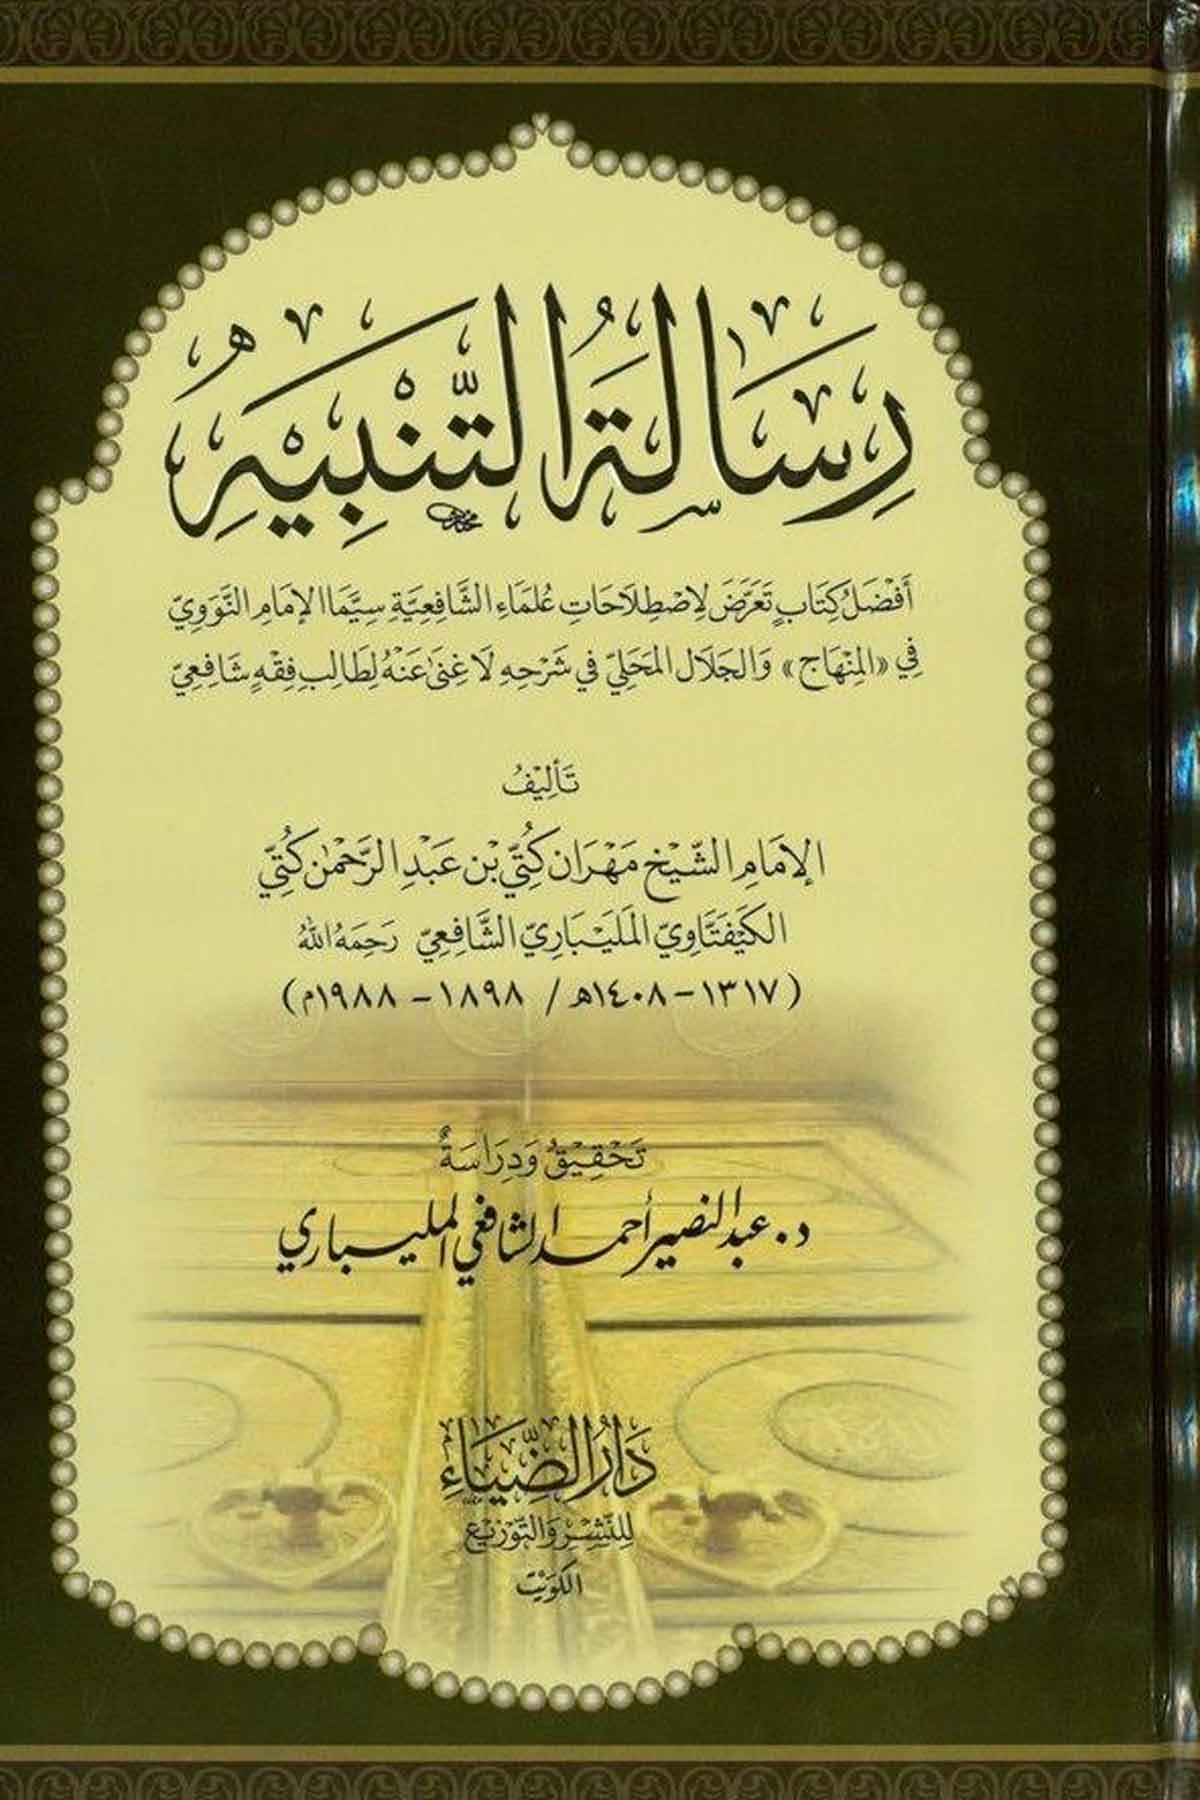 رِسَالَةُ التَّنْبِيهِ
أَفْضَلُ كِتَابٍ تَعَرَّضَ لِاصْطِلَاحَاتِ عُلَمَاءِ الشَّافِعِيَّةِ سِيَّمَا الإِمَامِ النَّوَوِيّ
فِي «المِنْهَاج» وَالجَلَال المَحَلِيّ في شَرْحِهِ لَا غِنَى عَنْهُ لِطَالِبِ فِقْهٍ شَافِعِيّ
تَأْلِيْفُ
الإمَامِ الشَّيْخ مَهْرَان كُتِّي بْن عَبْدِ الرَّحْمٰن كُتِّي
الكَيْفَتَّاوِيّ المَلَيْبَارِيّ الشَّافِعِيّ رَحِمَهُ اللهُ
(١٣١٧-١٤٠٨هـ / ١٨٩٨-١٩٨٨م)
تَحْقِيْقُ وَدِرَاسَةُ
د. عبد النصير أحمد الشافعي المليباري
دَارُ الضِّيَاءِ
لِلنَّشْرِ وَالتَّوْزِيْع
الكُوَيْت